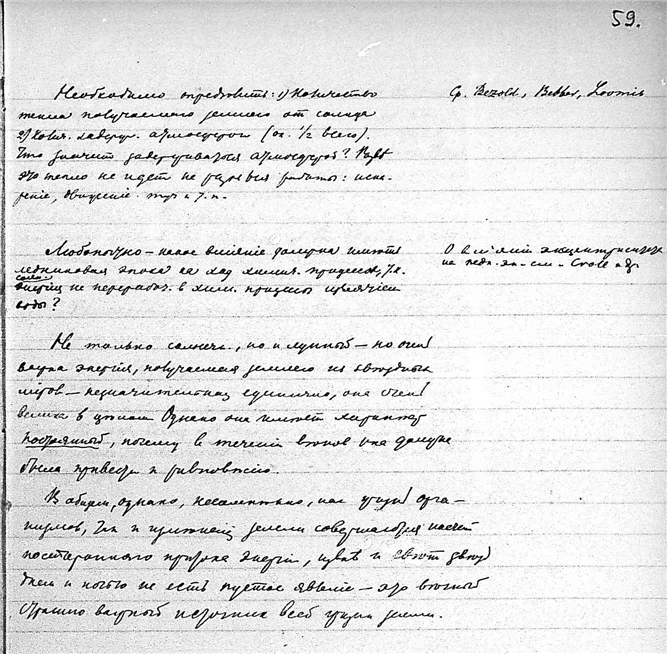 59.
Необходимо определить: 1) количество
тепла получаемого землею от солнца
2) колич. задерж. атмосферой (ок. 1/2 всего).
Что значит задерживается атмосферой? Разве
это тепло не идет на разные работы: испа-
рение, движение и т. п.
Ср. Bezold, Bebber, Loomis
Любопытно — какое влияние должна иметь
ледниковая эпоха на ход химич. процессов, т. е.
солн.
энергия не перерабат. в хим. процессы
воды?
О влиянии эксцентриситета
на ледн. эп. см. Croll и др.
Не только солнечн., но и лунный — но очен
важна энергия, получаемая землею из звездных
миров — незначительная единично, она очен
велика в целом. Однако она имеет характер
постоянный, почему в течении веков она должна
была привести к равновесию.
В общем, однако, несомненно, как жизнь орга-
низмов, так и земли совершается насчет
постороннего притока энергии, и свет звезд
днем и ночью не есть пустое явление — это вечный
страшно важный источник всей жизни земли.